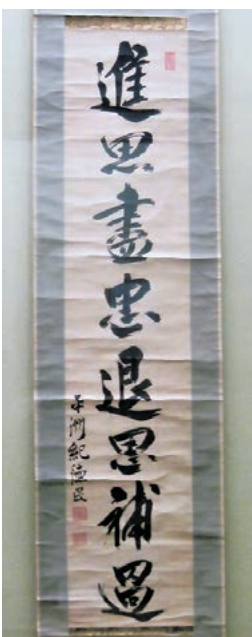 進思盡忠退思補過
平洲紀德民